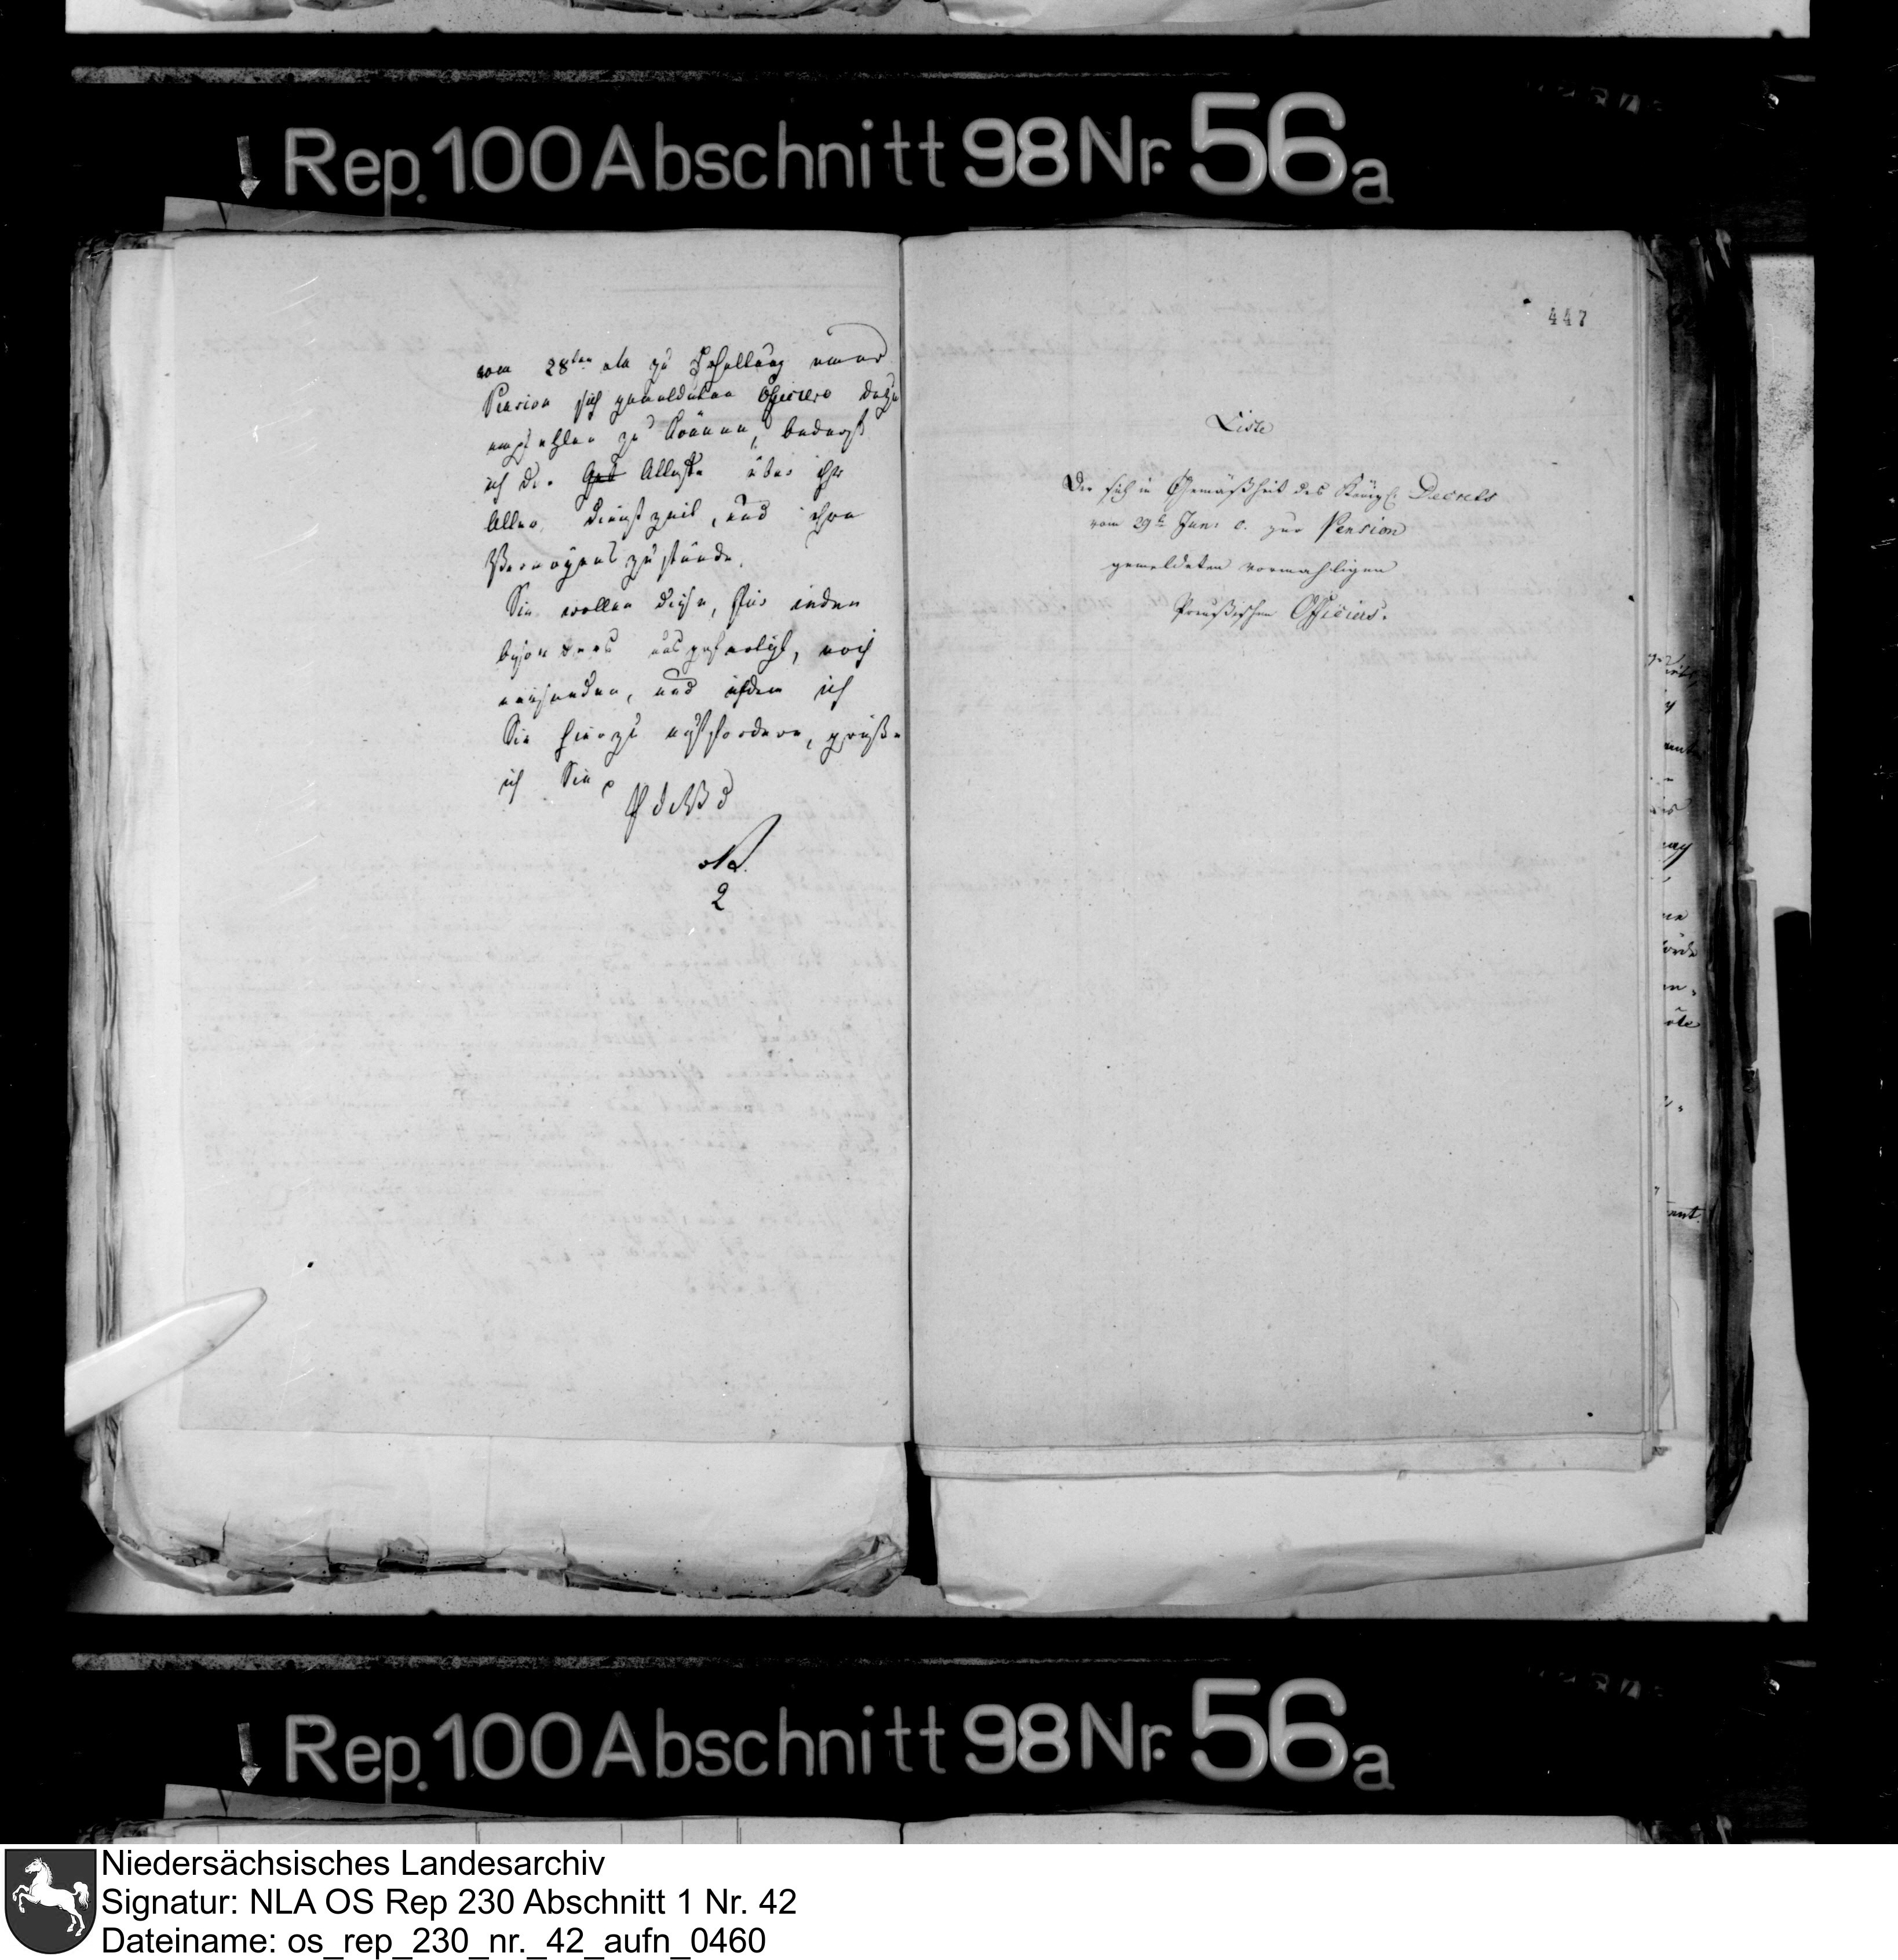 Rep. 100 Abschnitt 98 Nr. 56a
vom 28ten zu Erhaltung einer
Pension sich gemeldeten Officiers dazu
empfehlen zu können, bedarf
ich der Atteste über ihr
Alter, Dienstzeit, und ihre
Vermögens zustände.
Sie wollen diese, für jeden
besonders ausgefertigt, noch
einsenden, und indem ich
Sie hierzu auffordere, grüße
ich Sie
P d W D
2
447
Liste
Der sich in Gemäßheit des Königl. Decrets
vom 29t Jun: c. zur Pension
gemeldeten vormahligen
Preußischen Officiers.
Rep. 100 Abschnitt 98 Nr. 56a
Niedersächsisches Landesarchiv
Signatur: NLA OS Rep 230 Abschnitt 1 Nr. 42
Dateiname: os_rep_230_nr._42_aufn_0460